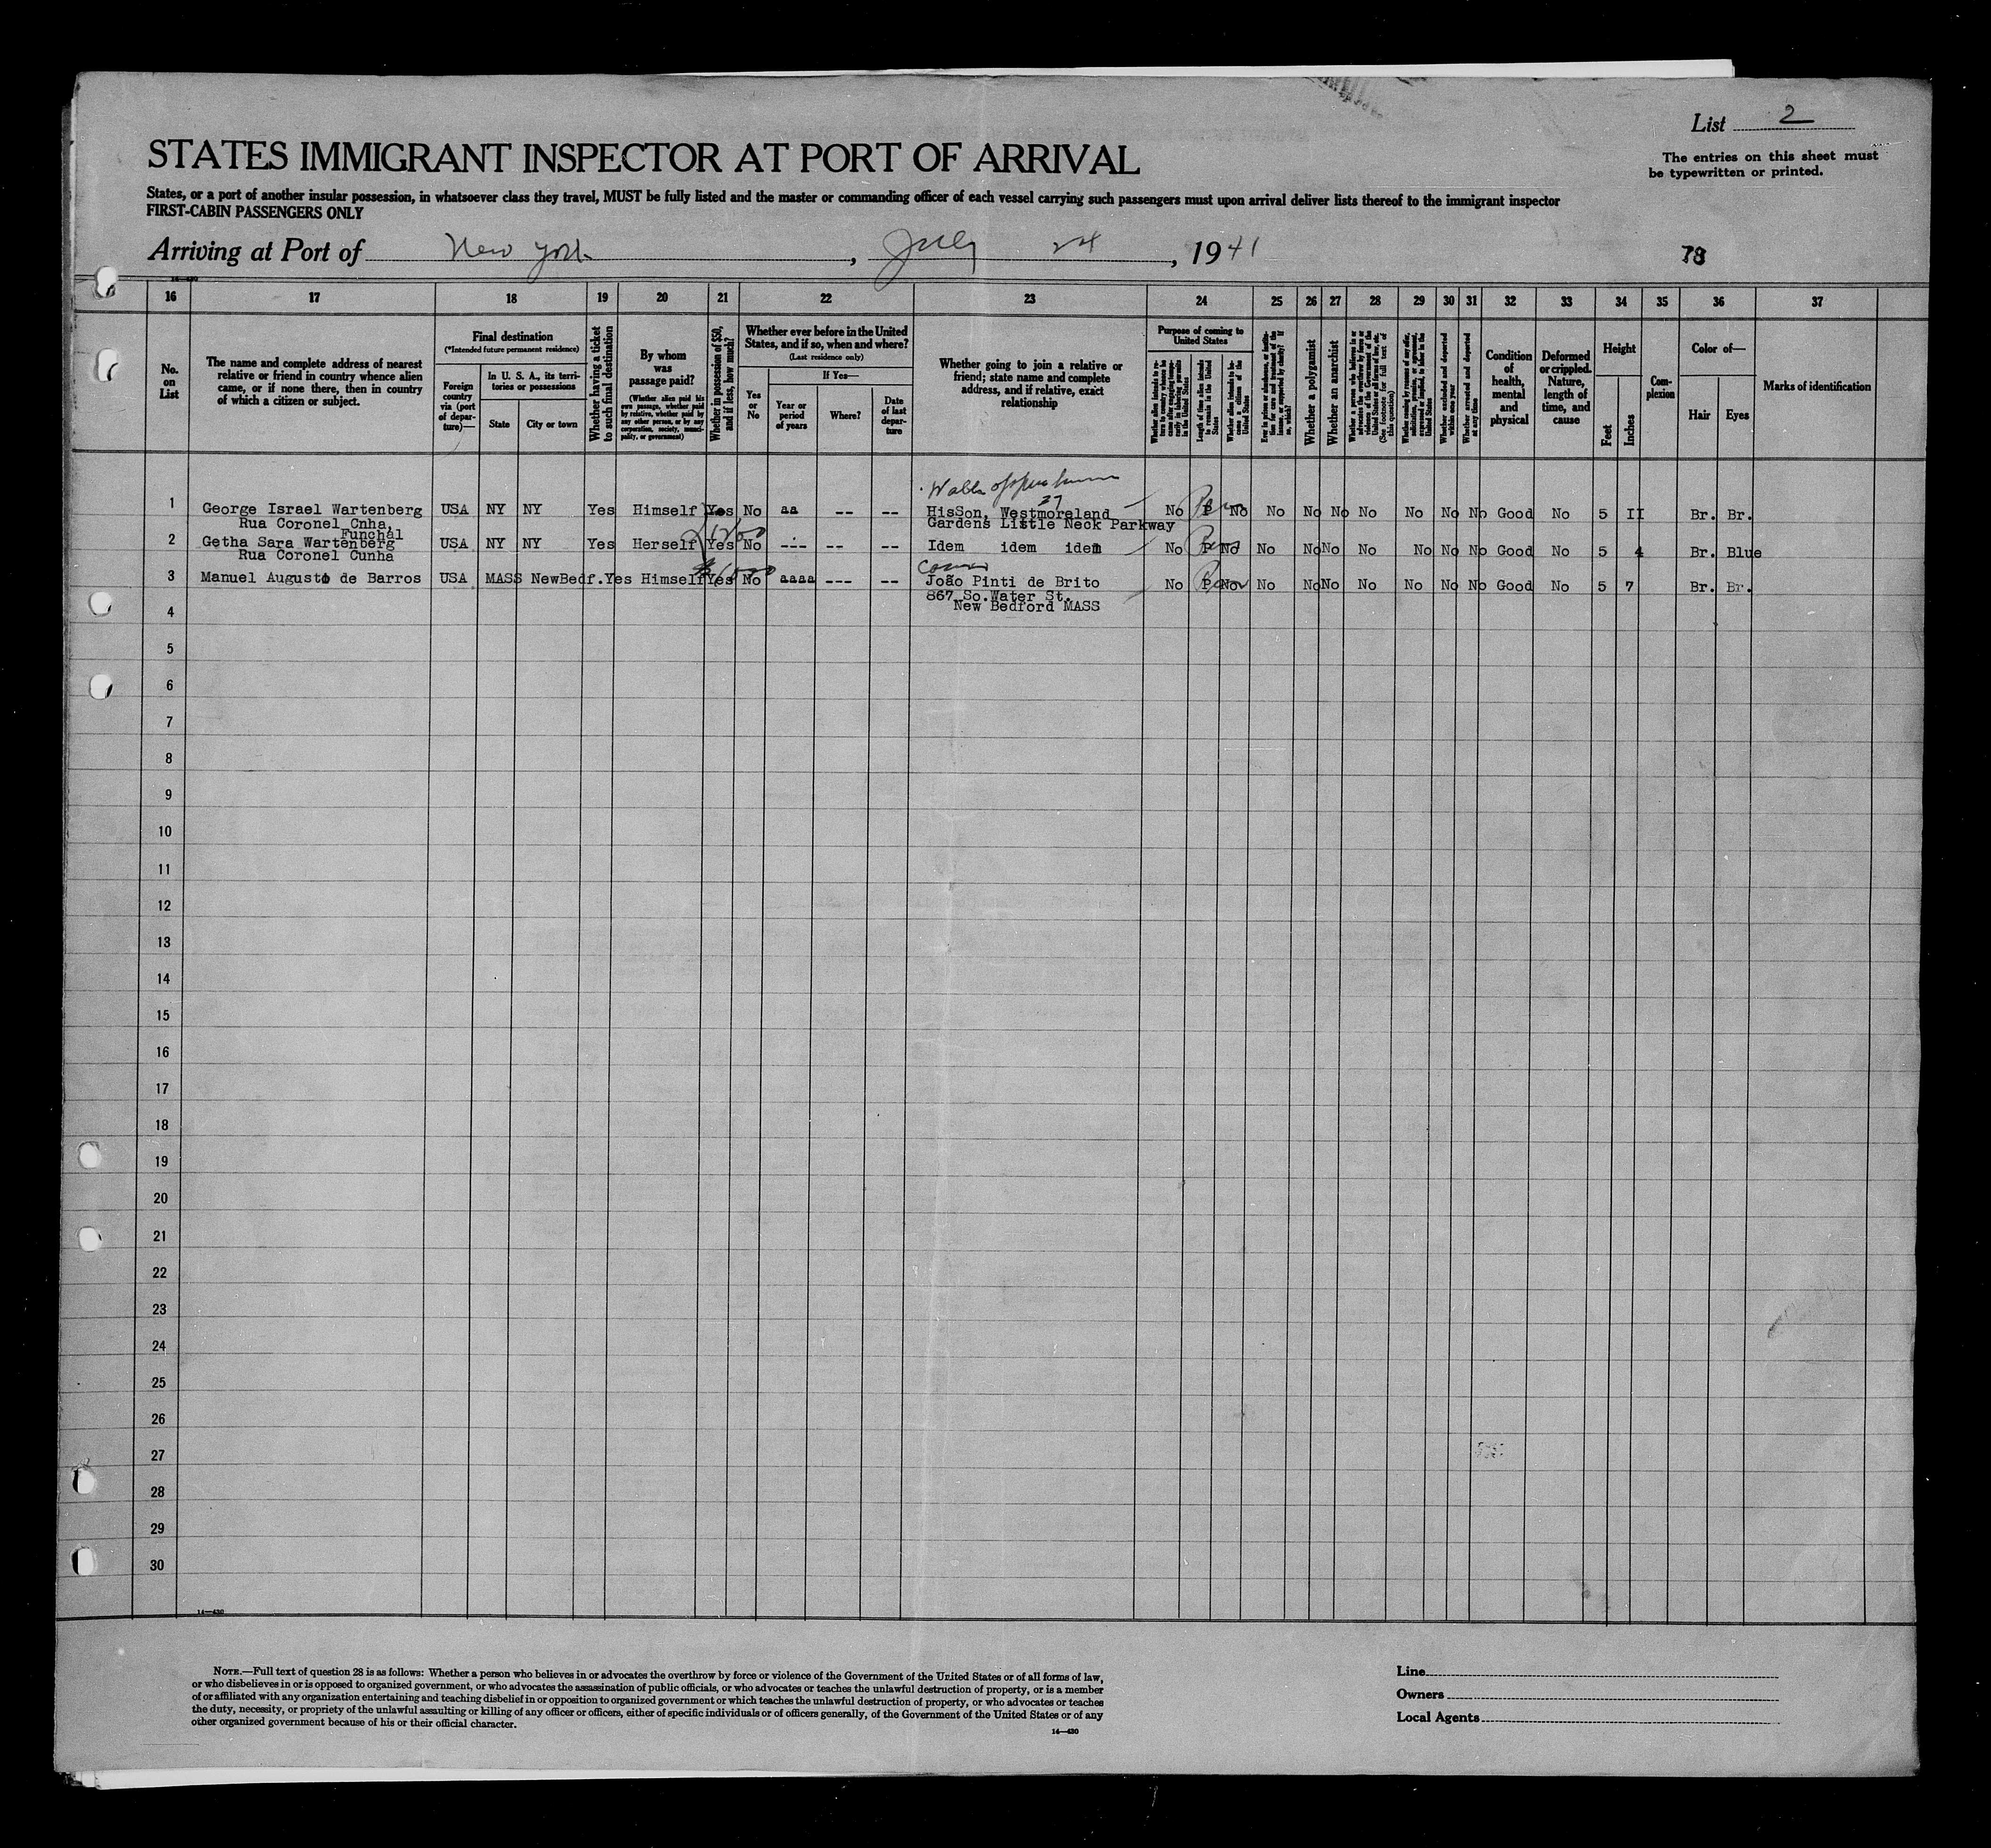 List 2
STATES IMMIGRANT INSPECTOR AT PORT OF ARRIVAL
The entries on this sheet must
be typewritten or printed.
States, or a port of another insular possession, in whatsoever class they travel, MUST be fully listed and the master or commanding officer of each vessel carrying such passengers must upon arrival deliver lists thereof to the immigrant inspector
FIRST-CABIN PASSENGERS ONLY
Arriving at Port of New York, July 24, 1941
78
14—430
16 17 18 19 20 21 22 23 24 25 26 27 28 29 30 31 32 33 34 35 36 37
No. on List
The name and complete address of nearest relative or friend in country whence alien came, or if none there, then in country of which a citizen or subject.
Final destination
(*Intended future permanent residence)
Foreign country via (port of departure)—
In U. S. A., its territories or possessions
State
City or town
Whether having a ticket to such final destination
By whom was passage paid?
(Whether alien paid his own passage, whether paid by relative, whether paid by any other person, or by any corporation, society, municipality, or government)
Whether in possession of $50, and if less, how much?
Whether ever before in the United States, and if so, when and where?
(Last residence only)
Yes or No
If Yes—
Year or period of years
Where?
Date of last departure
Whether going to join a relative or friend; state name and complete address, and if relative, exact relationship
Purpose of coming to United States
Whether alien intends to return to country whence he came after engaging temporarily in laboring pursuits in the United States
Length of time alien intends to remain in the United States
Whether alien intends to become a citizen of the United States
Ever in prison or almshouse, or institution for care and treatment of the insane, or supported by charity? If so, which?
Whether a polygamist
Whether an anarchist
Whether a person who believes in or advocates the overthrow by force or violence of the Government of the United States or all forms of law, etc. (See footnote for full text of this question)
Whether coming by reason of any offer, solicitation, promise, or agreement, expressed or implied, to labor in the United States
Whether excluded and deported within one year
Whether arrested and deported at any time
Condition of health, mental and physical
Deformed or crippled. Nature, length of time, and cause
Height
Feet
Inches
Complexion
Color of—
Hair
Eyes
Marks of identification
1 George Israel Wartenberg USA NY NY Yes Himself Yes No aa -- -- HisSon, Westmoraland No P No No No No No No No No Good No 5 II Br. Br.
27
Rua Coronel Cnha, Gardens Listle Neck Parkway
Funchal
2 Getha Sara Wartenberg USA NY NY Yes Herself Yes No --- -- -- Idem idem idem No P No No No No No No No No Good No 5 4 Br. Blue
Rua Coronel Cunha
3 Manuel Augusto de Barros USA MASS NewBedf. Yes Himself Yes No aaaa --- -- João Pinti de Brito No P No No No No No No No No Good No 5 7 Br. Br.
867 So.Water St.
New Bedford MASS
4
5
6
7
8
9
10
11
12
13
14
15
16
17
18
19
20
21
22
23
24
25
26
27
28
29
30
14—430
NOTE.—Full text of question 28 is as follows: Whether a person who believes in or advocates the overthrow by force or violence of the Government of the United States or of all forms of law,
or who disbelieves in or is opposed to organized government, or who advocates the assassination of public officials, or who advocates or teaches the unlawful destruction of property, or is a member
of or affiliated with any organization entertaining and teaching disbelief in or opposition to organized government or which teaches the unlawful destruction of property, or who advocates or teaches
the duty, necessity, or propriety of the unlawful assaulting or killing of any officer or officers, either of specific individuals or of officers generally, of the Government of the United States or of any
other organized government because of his or their official character.
14—430
Line
Owners
Local Agents